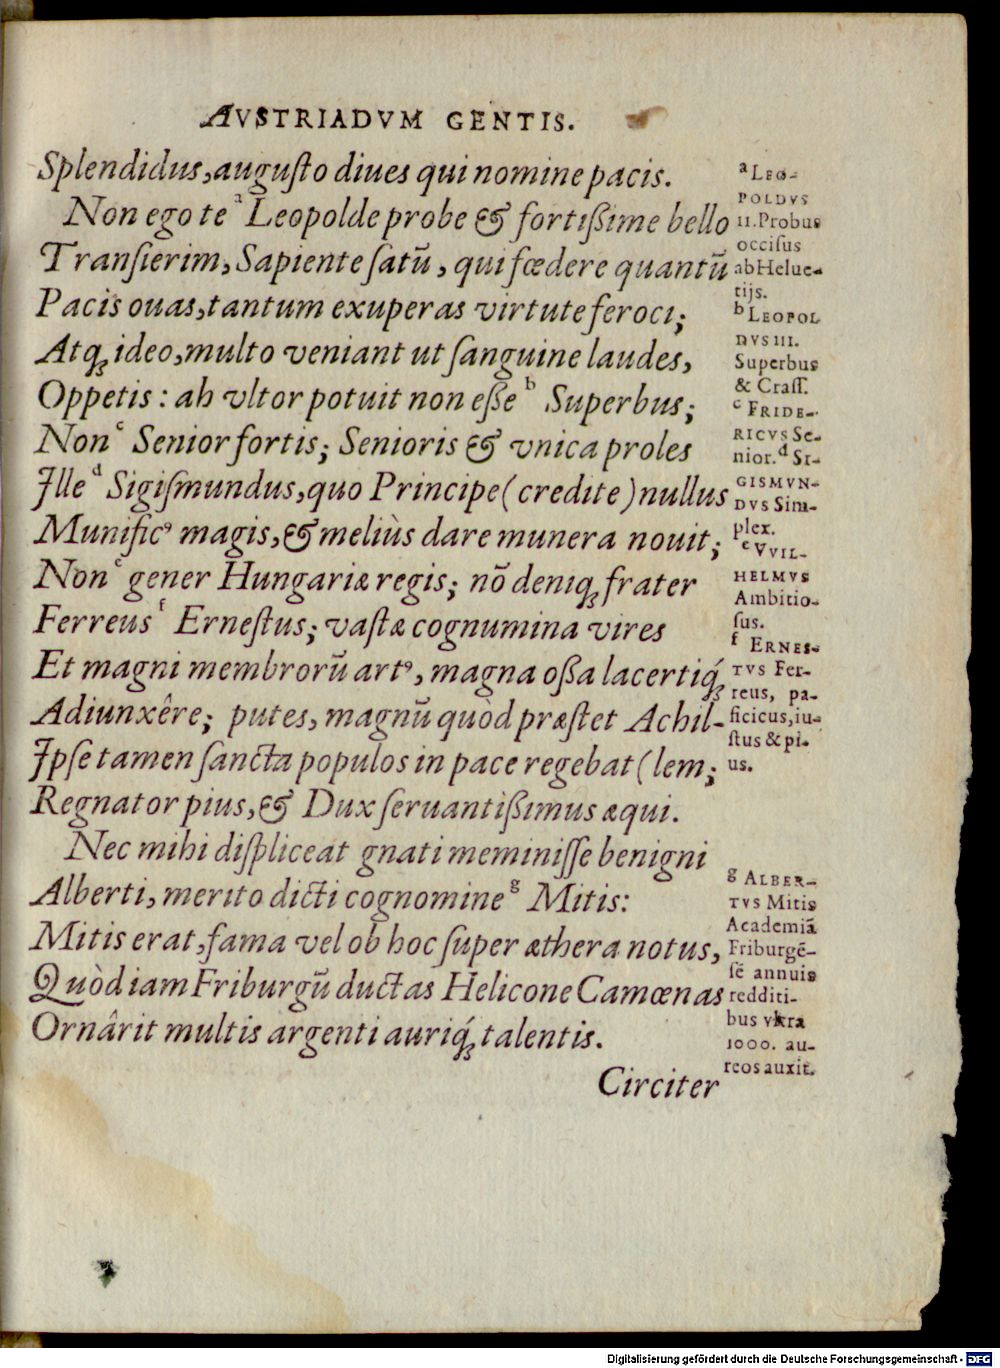 AVSTRIADVM GENTIS.
Splendidus, augusto diues qui nomine pacis.
Non ego te ᵃ Leopolde probe & fortißime bello
Transierim, Sapiente satū, qui fœdere quantū
Pacis ouas, tantum exuperas virtute feroci;
Atq̢ ideo, multo veniant ut sanguine laudes,
Oppetis: ah vltor potuit non eße ᵇ Superbus;
Non ᶜ Senior fortis; Senioris & vnica proles
Ille ᵈ Sigismundus, quo Principe (credite) nullus
Munificꝰ magis, & meliùs dare munera nouit;
Non ᵉ gener Hungariæ regis; nō deniq̢ frater
Ferreus ᶠ Ernestus; vastæ cognumina vires
Et magni membrorū artꝰ, magna oßa lacertiq̢́
Adiunxêre; putes, magnū quòd præstet Achil-
Ipse tamen sancta populos in pace regebat (lem;
Regnator pius, & Dux seruantißimus æqui.
Nec mihi displiceat gnati meminisse benigni
Alberti, merito dicti cognomine ᵍ Mitis:
Mitis erat, fama vel ob hoc super æthera notus,
Quòd iam Friburgū ductas Helicone Camœnas
Ornârit multis argenti auriq̢́ talentis.
Circiter
ᵃ LEO-
POLDVS
II. Probus
occisus
ab Helue-
tijs.
ᵇ LEOPOL
DVS III.
Superbus
& Crass.
ᶜ FRIDE-
RICVS Se-
nior. ᵈ SI-
GISMVN-
DVS Sim-
plex.
ᵉ VVIL-
HELMVS
Ambitio-
sus.
ᶠ ERNES-
TVS Fer-
reus, pa-
cificus, iu-
stus & pi-
us.
ᵍ ALBER-
TVS Mitis
Academiā
Friburgē-
sē annuis
redditi-
bus vltra
1000. au-
reos auxit.
Digitalisierung gefördert durch die Deutsche Forschungsgemeinschaft - DFG